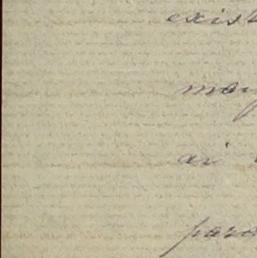 exist
may
ai
para